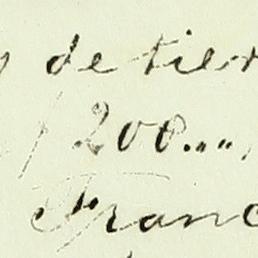 de tier
200....
Franc